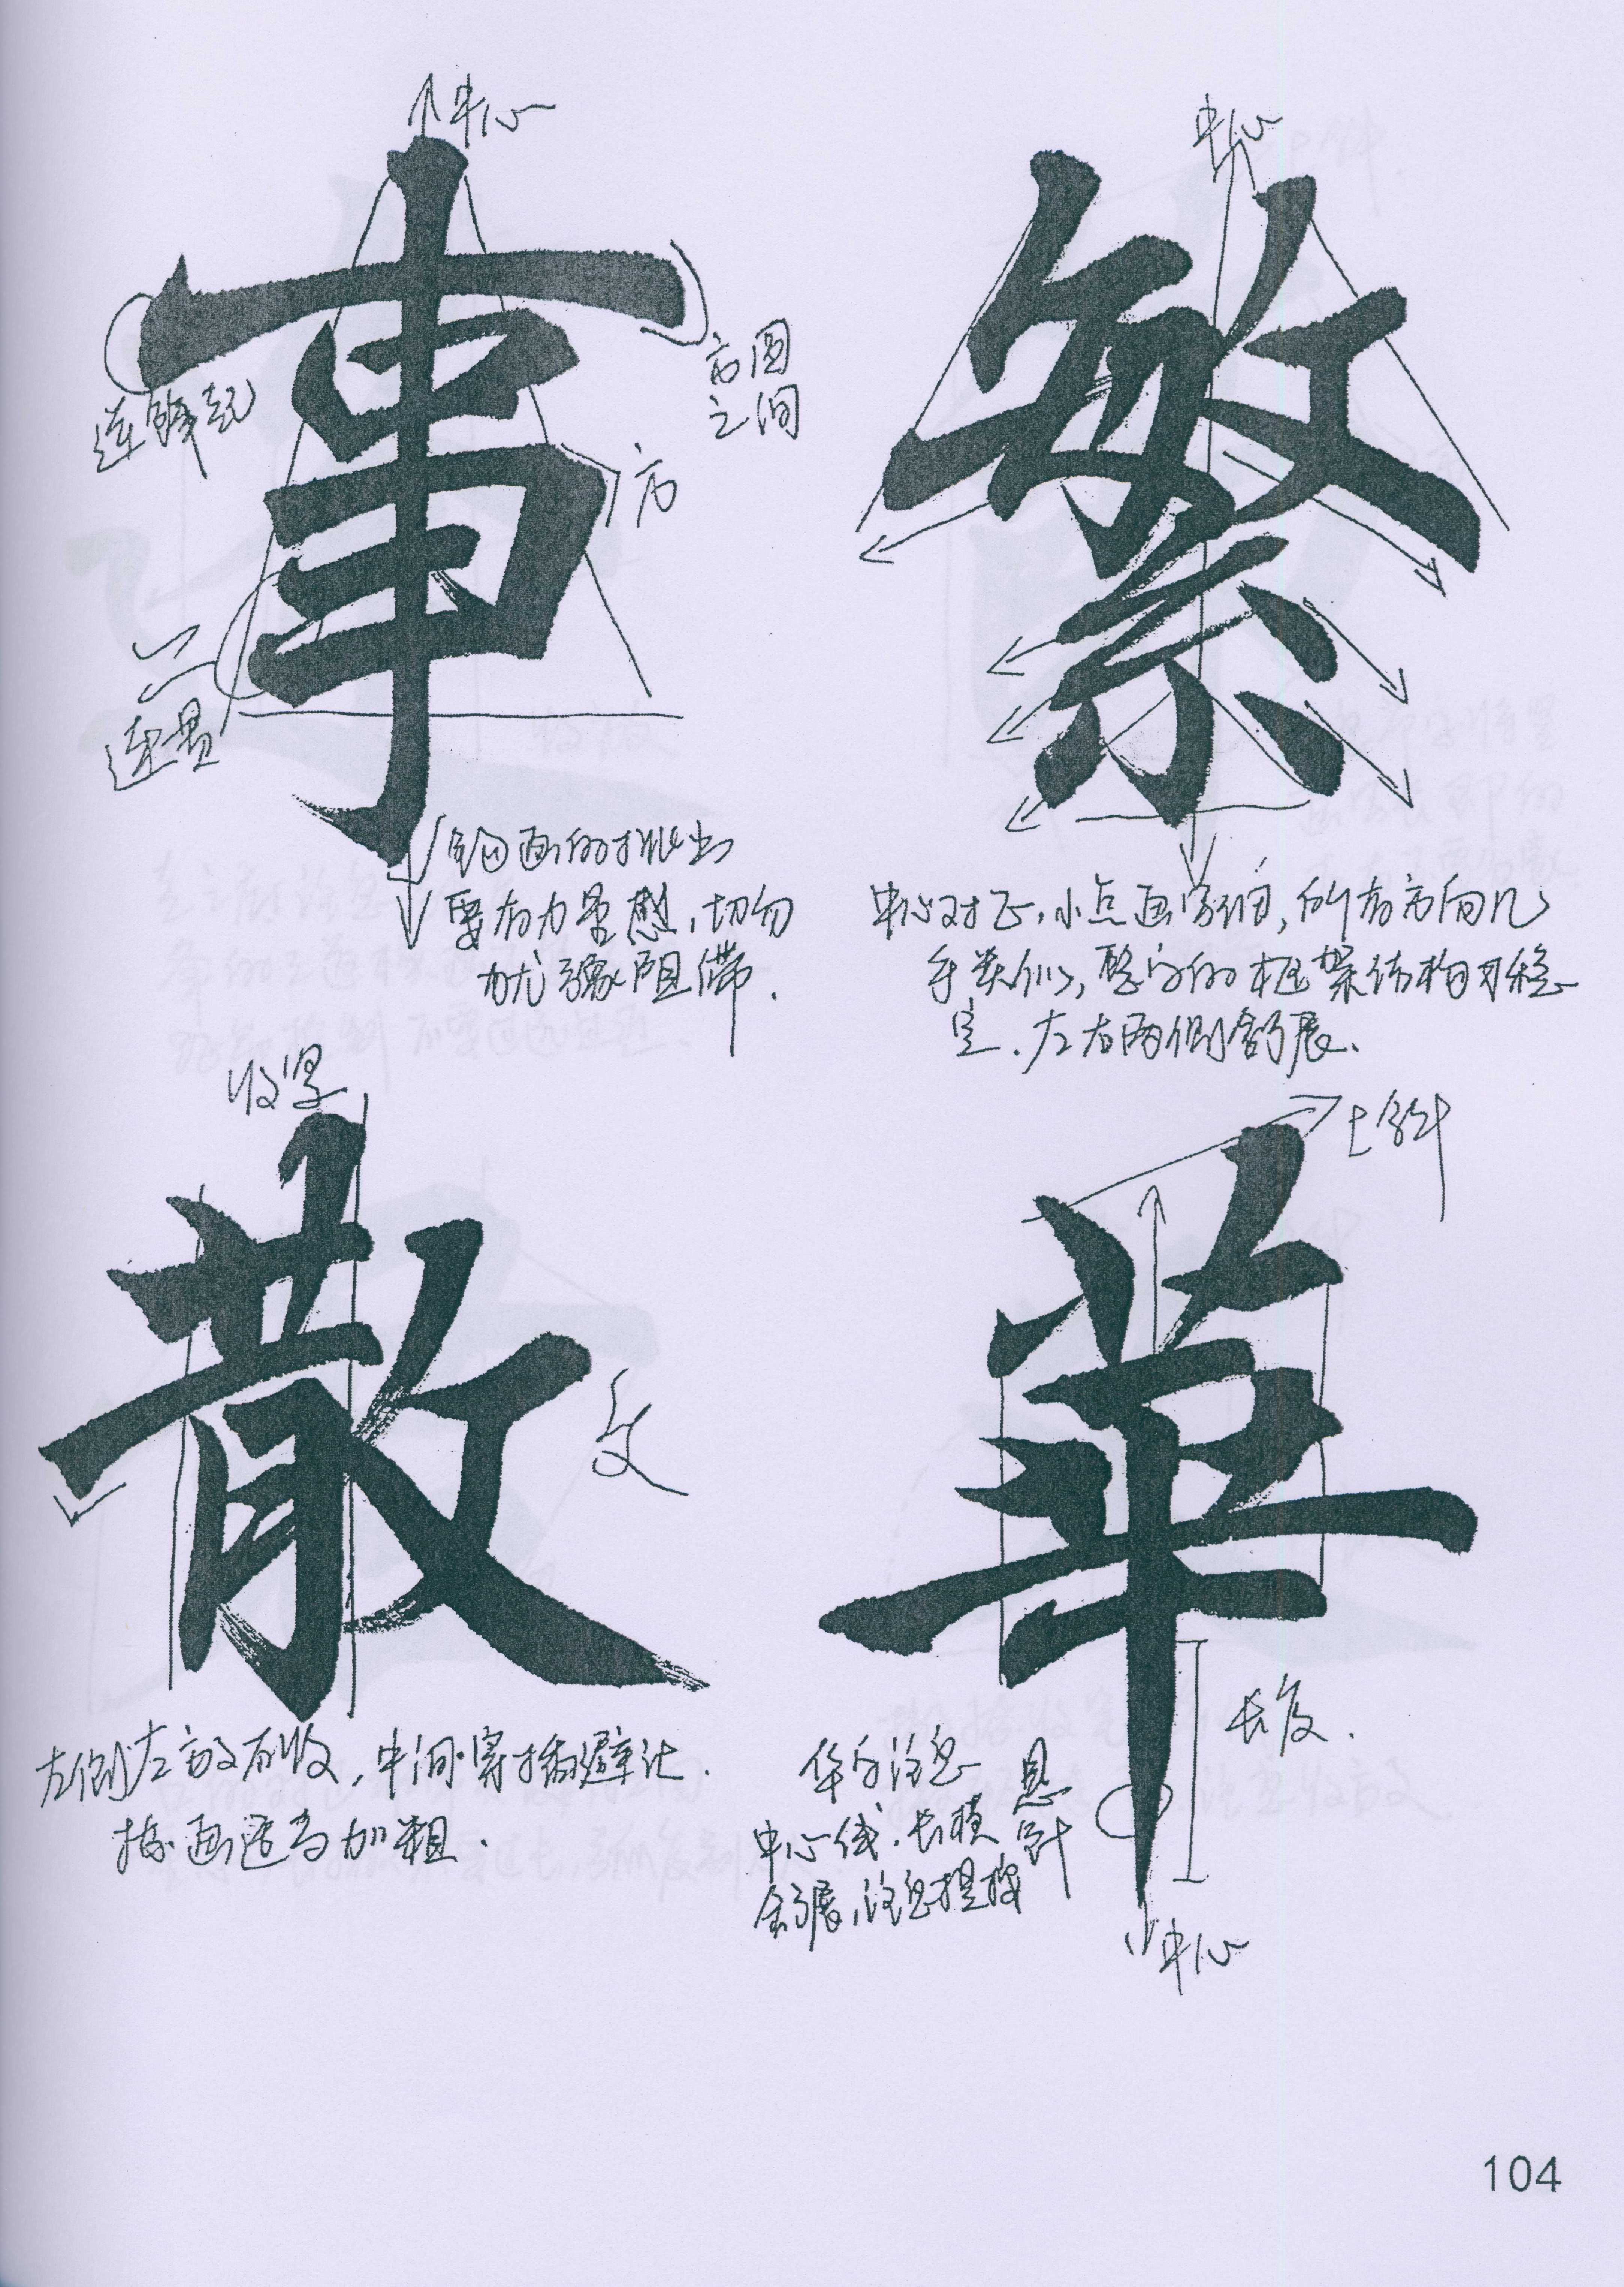 中心
事
方圆
之间
逆锋起
方
连贯
钩画的挑出
要有力量感，切勿
犹豫阻滞.
中心
繁
中心对正，小点画密细，所有方向几
乎类似，整字的框架结构才稳
定.左右两侧舒展.
收紧
散
攵
左侧左放右收，中间穿插避让.
捺画适当加粗.
上斜
華
长度.
华字注意
中心线.长横
舒展，注意提按
悬针
中心
104